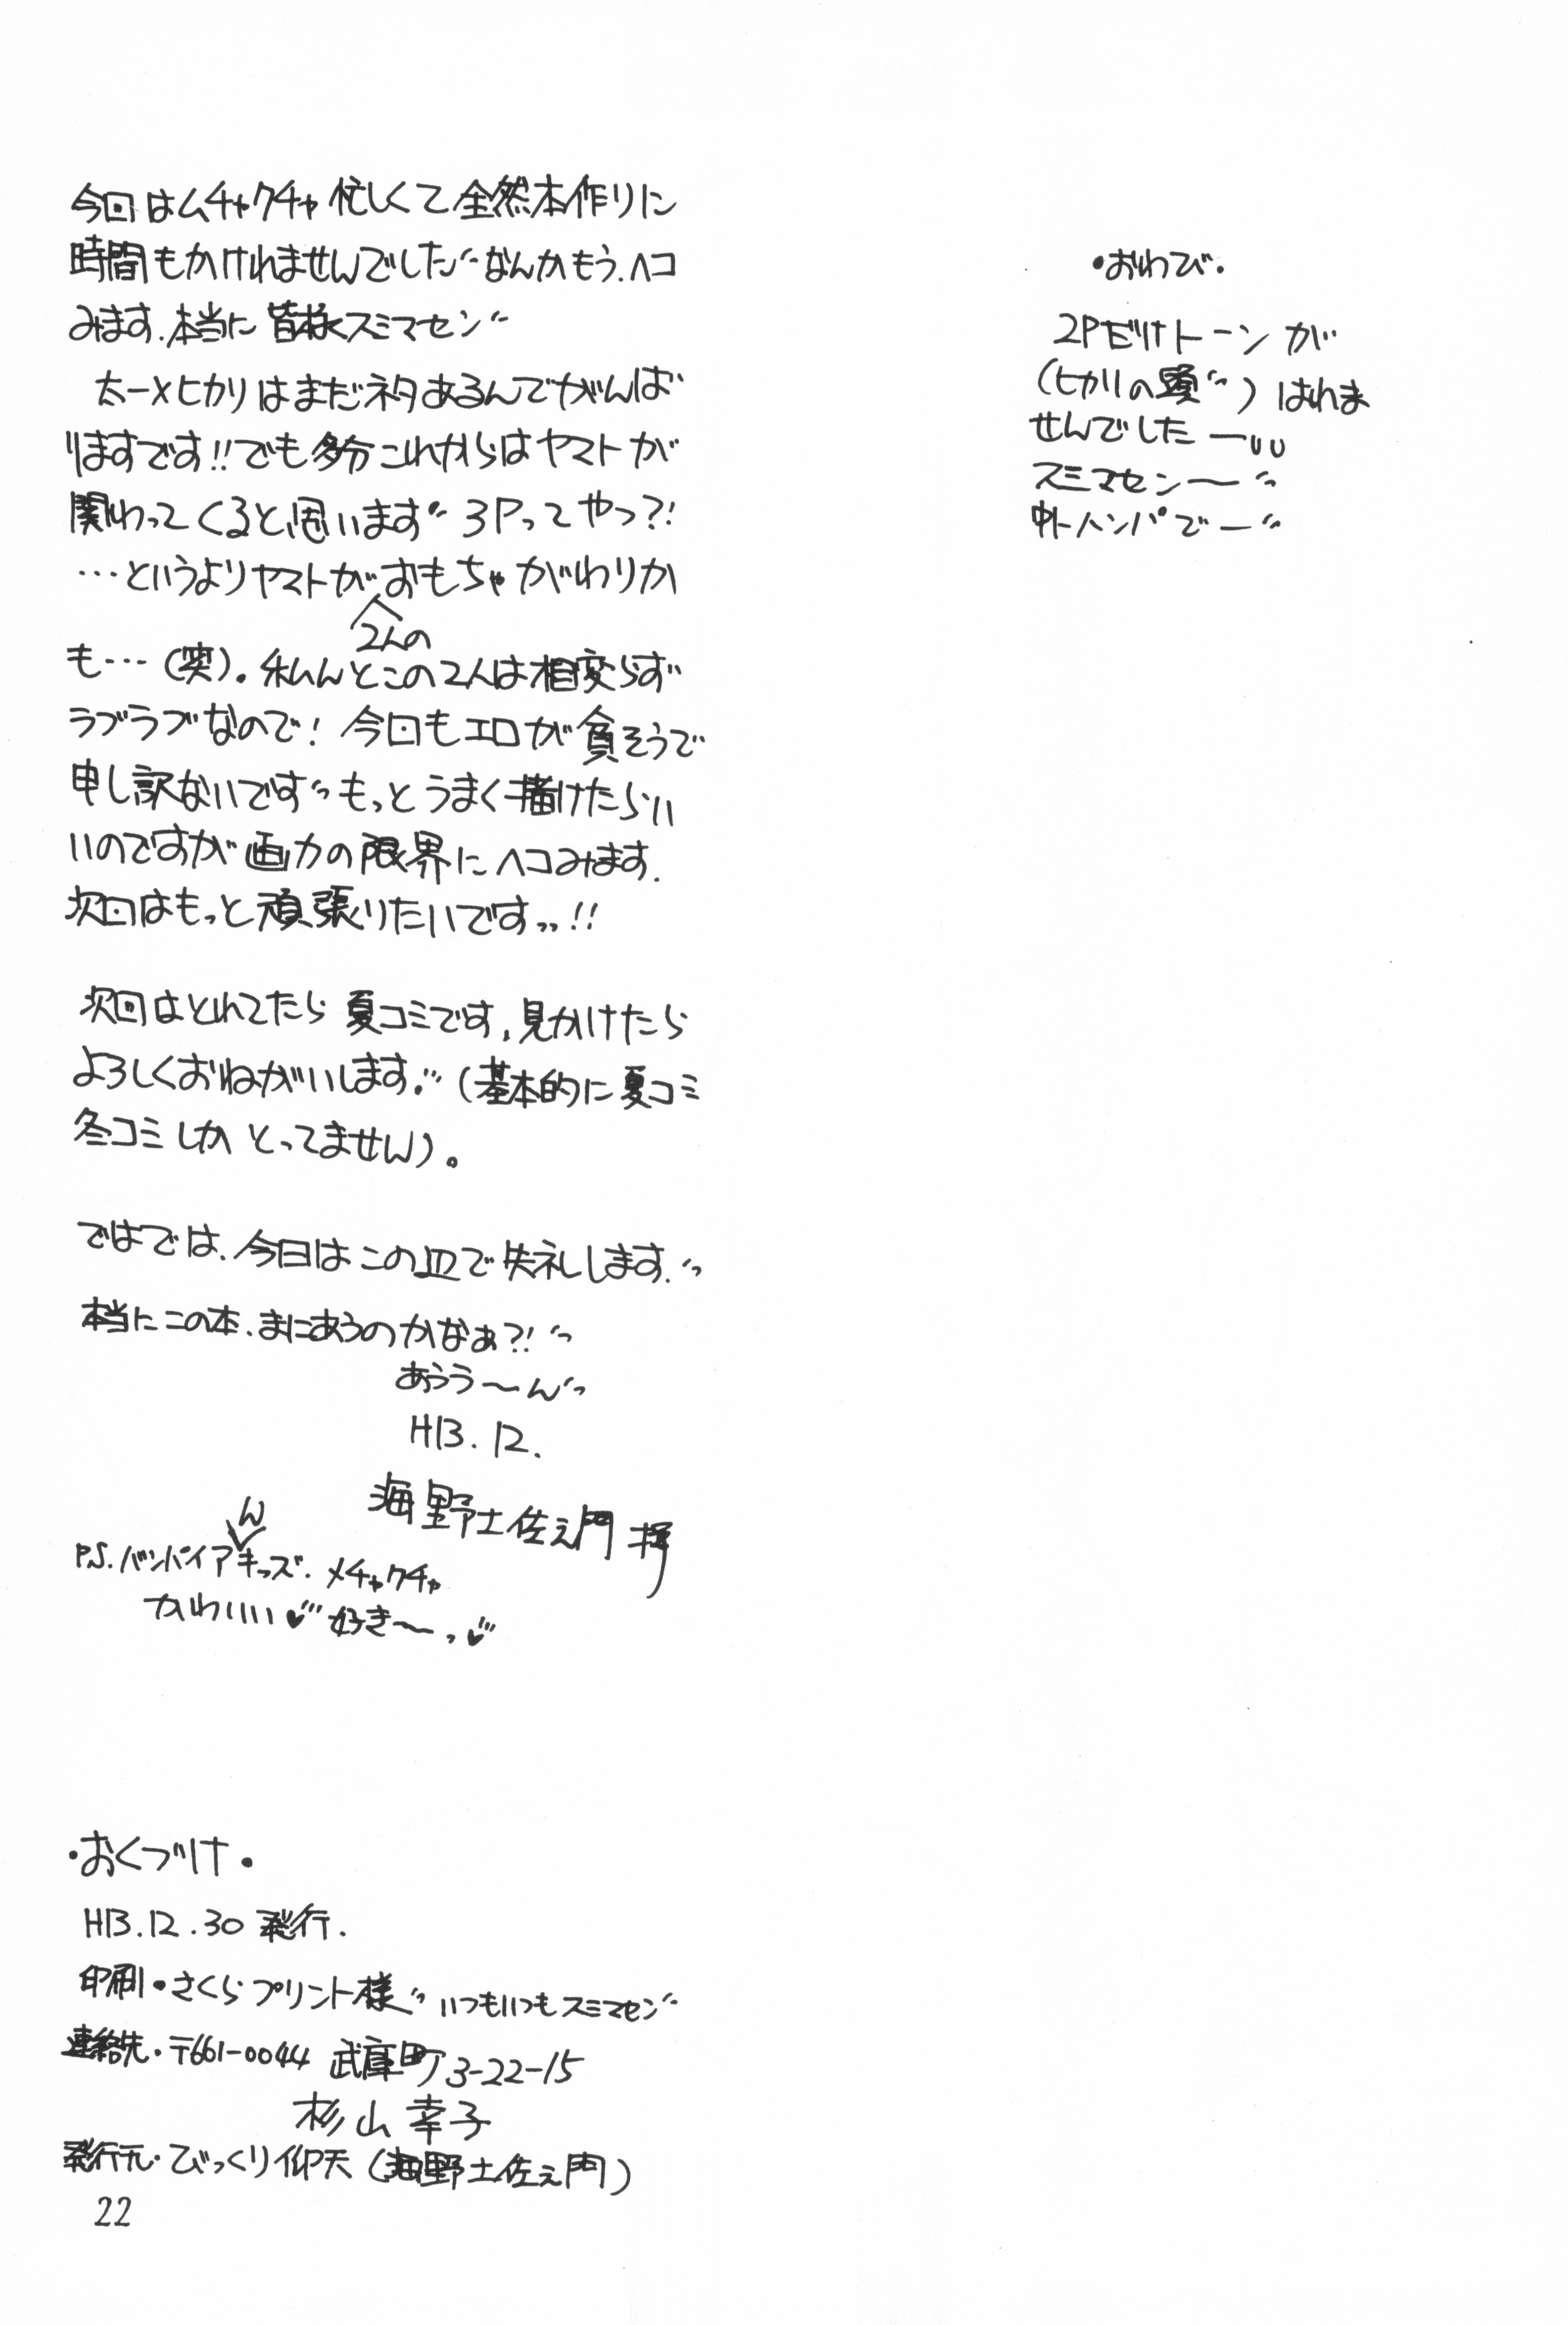 今回はムチャクチャ忙しくて全然本作りに
時間もかけれませんでした゛なんかもう.ヘコ
みます.本当に皆様スミマセン゛
太一×ヒカリはまだネタあるんでがんば
りますです!!でも多分これからはヤマトが
関わってくると思います゛3Pってやつ?!
…というよりヤマトが2人のおもちゃがわりか
も…(笑)。私んとこの2人は相変らず
ラブラブなので!今回もエロが貧そうで
申し訳ないです゛もっとうまく描けたらい
いのですが画力の限界にヘコみます.
次回はもっと頑張りたいですっ!!
次回はとれてたら夏コミです.見かけたら
よろしくおねがいします.゛(基本的に夏コミ
冬コミしかとってません)。
ではでは.今日はこの辺で失礼します.゛
本当にこの本.まにあうのかなぁ?!゛
あうう〜ん゛
H13.12.
海野土佐ェ門 拝
P.S.バンパイアンキッズ.メチャクチャ
かわいい♥゛好き〜っ♥
・おくづけ・
H13.12.30発行.
印刷・さくらプリント様゛いつもいつもスミマセン゛
連絡先・〒661-0044 武庫町3-22-15
杉山幸子
発行元・びっくり仰天(海野土佐ェ門)
22
・おわび・
2Pだけトーンが
(ヒカリの頭゛)はれま
せんでしたー
スミマセン〜゛
中トハンパでー゛